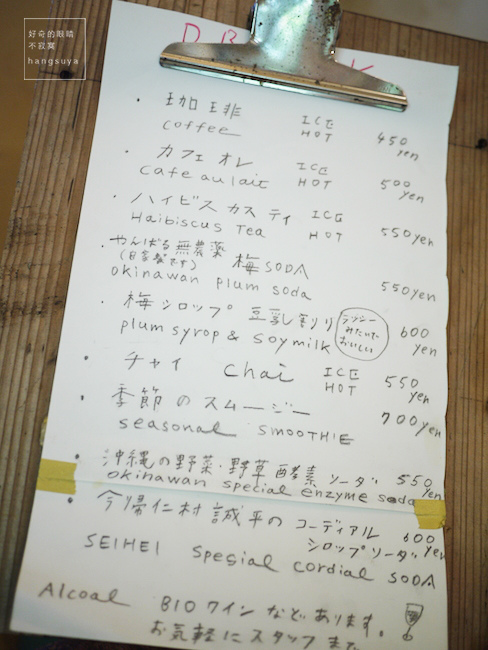 好奇的眼睛
不寂寞
hangsuya
・珈琲 ICE 450
coffee HOT yen
・カフェオレ ICE 500
cafe au lait HOT yen
・ハイビスカスティ ICE
Haibiscus Tea HOT 550yen
・やんばる無農薬 梅SODA
(自家製です)
okinawan plum soda 550yen
・梅シロップ 豆乳割り 600
plum syrop & soymilk yen
ラッシー
みたいで
おいしい
・チャイ chai ICE 550
HOT yen
・季節のスムージー 700yen
seasonal SMOOTHIE
・沖縄の野菜・野草酵素ソーダ 550
okinawan special enzyme soda yen
・今帰仁村誠平のコーディアル 600
シロップソーダ yen
SEIHEI spesial cordial SODA
Alcoal BIOワインなどあります。
お気軽にスタッフまで